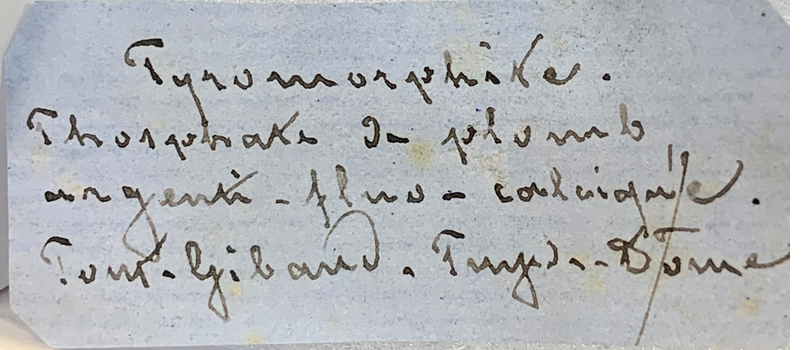 Pyromorphite.
Phosphate de plomb
argenti-fluo-calcique.
Pont-Gibaud. Puy-de-Dôme